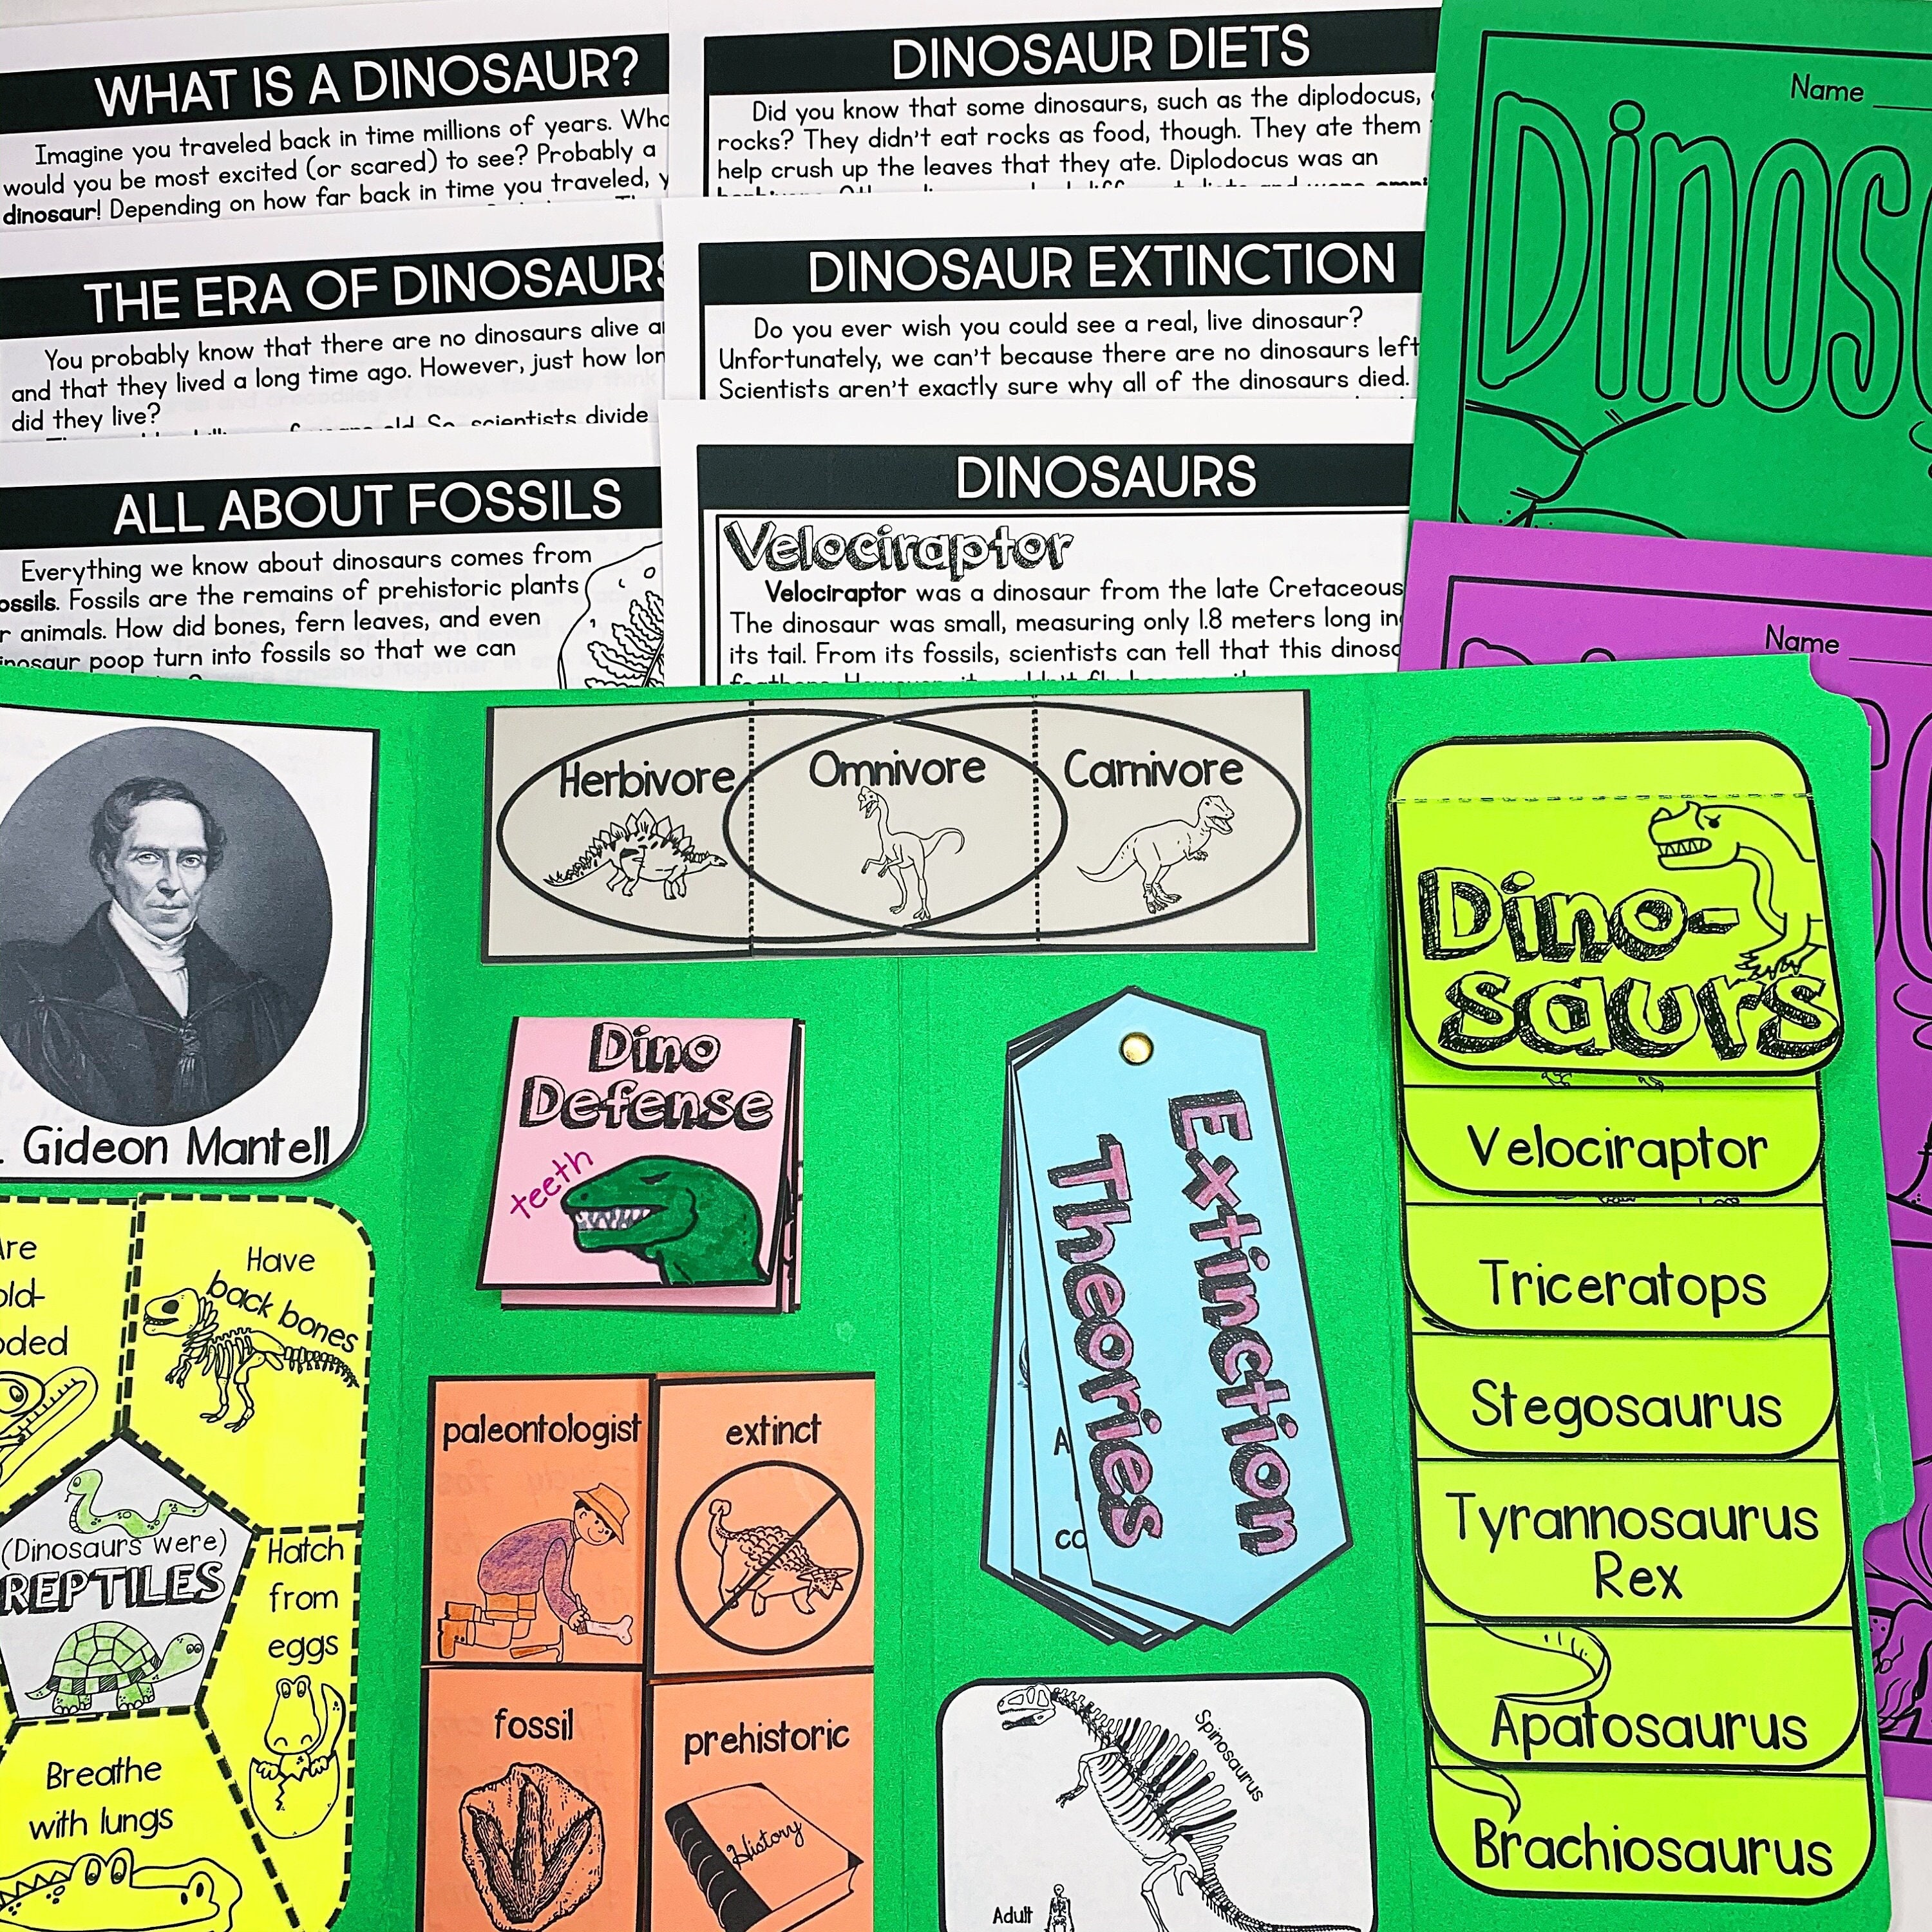 WHAT IS A DINOSAUR?
Imagine you traveled back in time millions of years.
would you be most excited (or scared) to see? Probably a
dinosaur! Depending on how far back in time you traveled,
THE ERA OF DINOSAURS
You probably know that there are no dinosaurs alive
and that they lived a long time ago. However, just how
did they live?
old. So, scientists divide
ALL ABOUT FOSSILS
Everything we know about dinosaurs comes from
fossils. Fossils are the remains of prehistoric plants
animals. How did bones, fern leaves, and even
dinosaur poop turn into fossils so that we can
DINOSAUR DIETS
Did you know that some dinosaurs, such as the diplodocus,
rocks? They didn't eat rocks as food, though. They ate them
help crush up the leaves that they ate. Diplodocus was an
DINOSAUR EXTINCTION
Do you ever wish you could see a real, live dinosaur?
Unfortunately, we can't because there are no dinosaurs left
Scientists aren't exactly sure why all of the dinosaurs died.
DINOSAURS
Velociraptor
Velociraptor was a dinosaur from the late Cretaceous
The dinosaur was small, measuring only 1.8 meters long
its tail. From its fossils, scientists can tell that this
Name
Dinos
Name
Gideon Mantell
Herbivore
Omnivore
Carnivore
Dino
Defense
teeth
Extinction
Theories
Dino-
saurs
Velociraptor
Triceratops
Stegosaurus
Tyrannosaurus
Rex
Apatosaurus
Brachiosaurus
Have
back bones
(Dinosaurs were)
REPTILES
Hatch
from
eggs
Breathe
with lungs
paleontologist
extinct
fossil
prehistoric
History
Spinosaurus
Adult